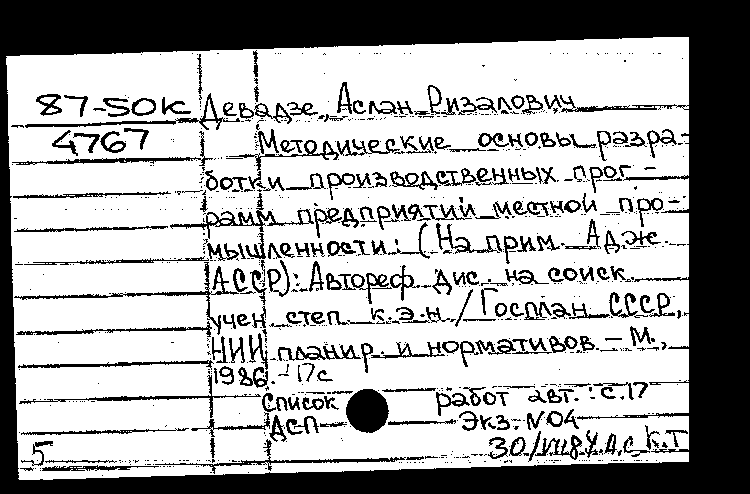 87-50К Девадзе, Аслан Ризалович
4767 Методические основы разра-
ботки производственных прог-
рамм предприятий местной про-
мышленности: (На прим. Адж.
АССР): Автореф. дис. на соиск.
учен. степ. к.э.н / Госплан СССР,
НИИ планир. и нормативов – М.,
1986. – 17с
Список работ авт.: с. 17
ДСП Экз. №04
5 30/VII87